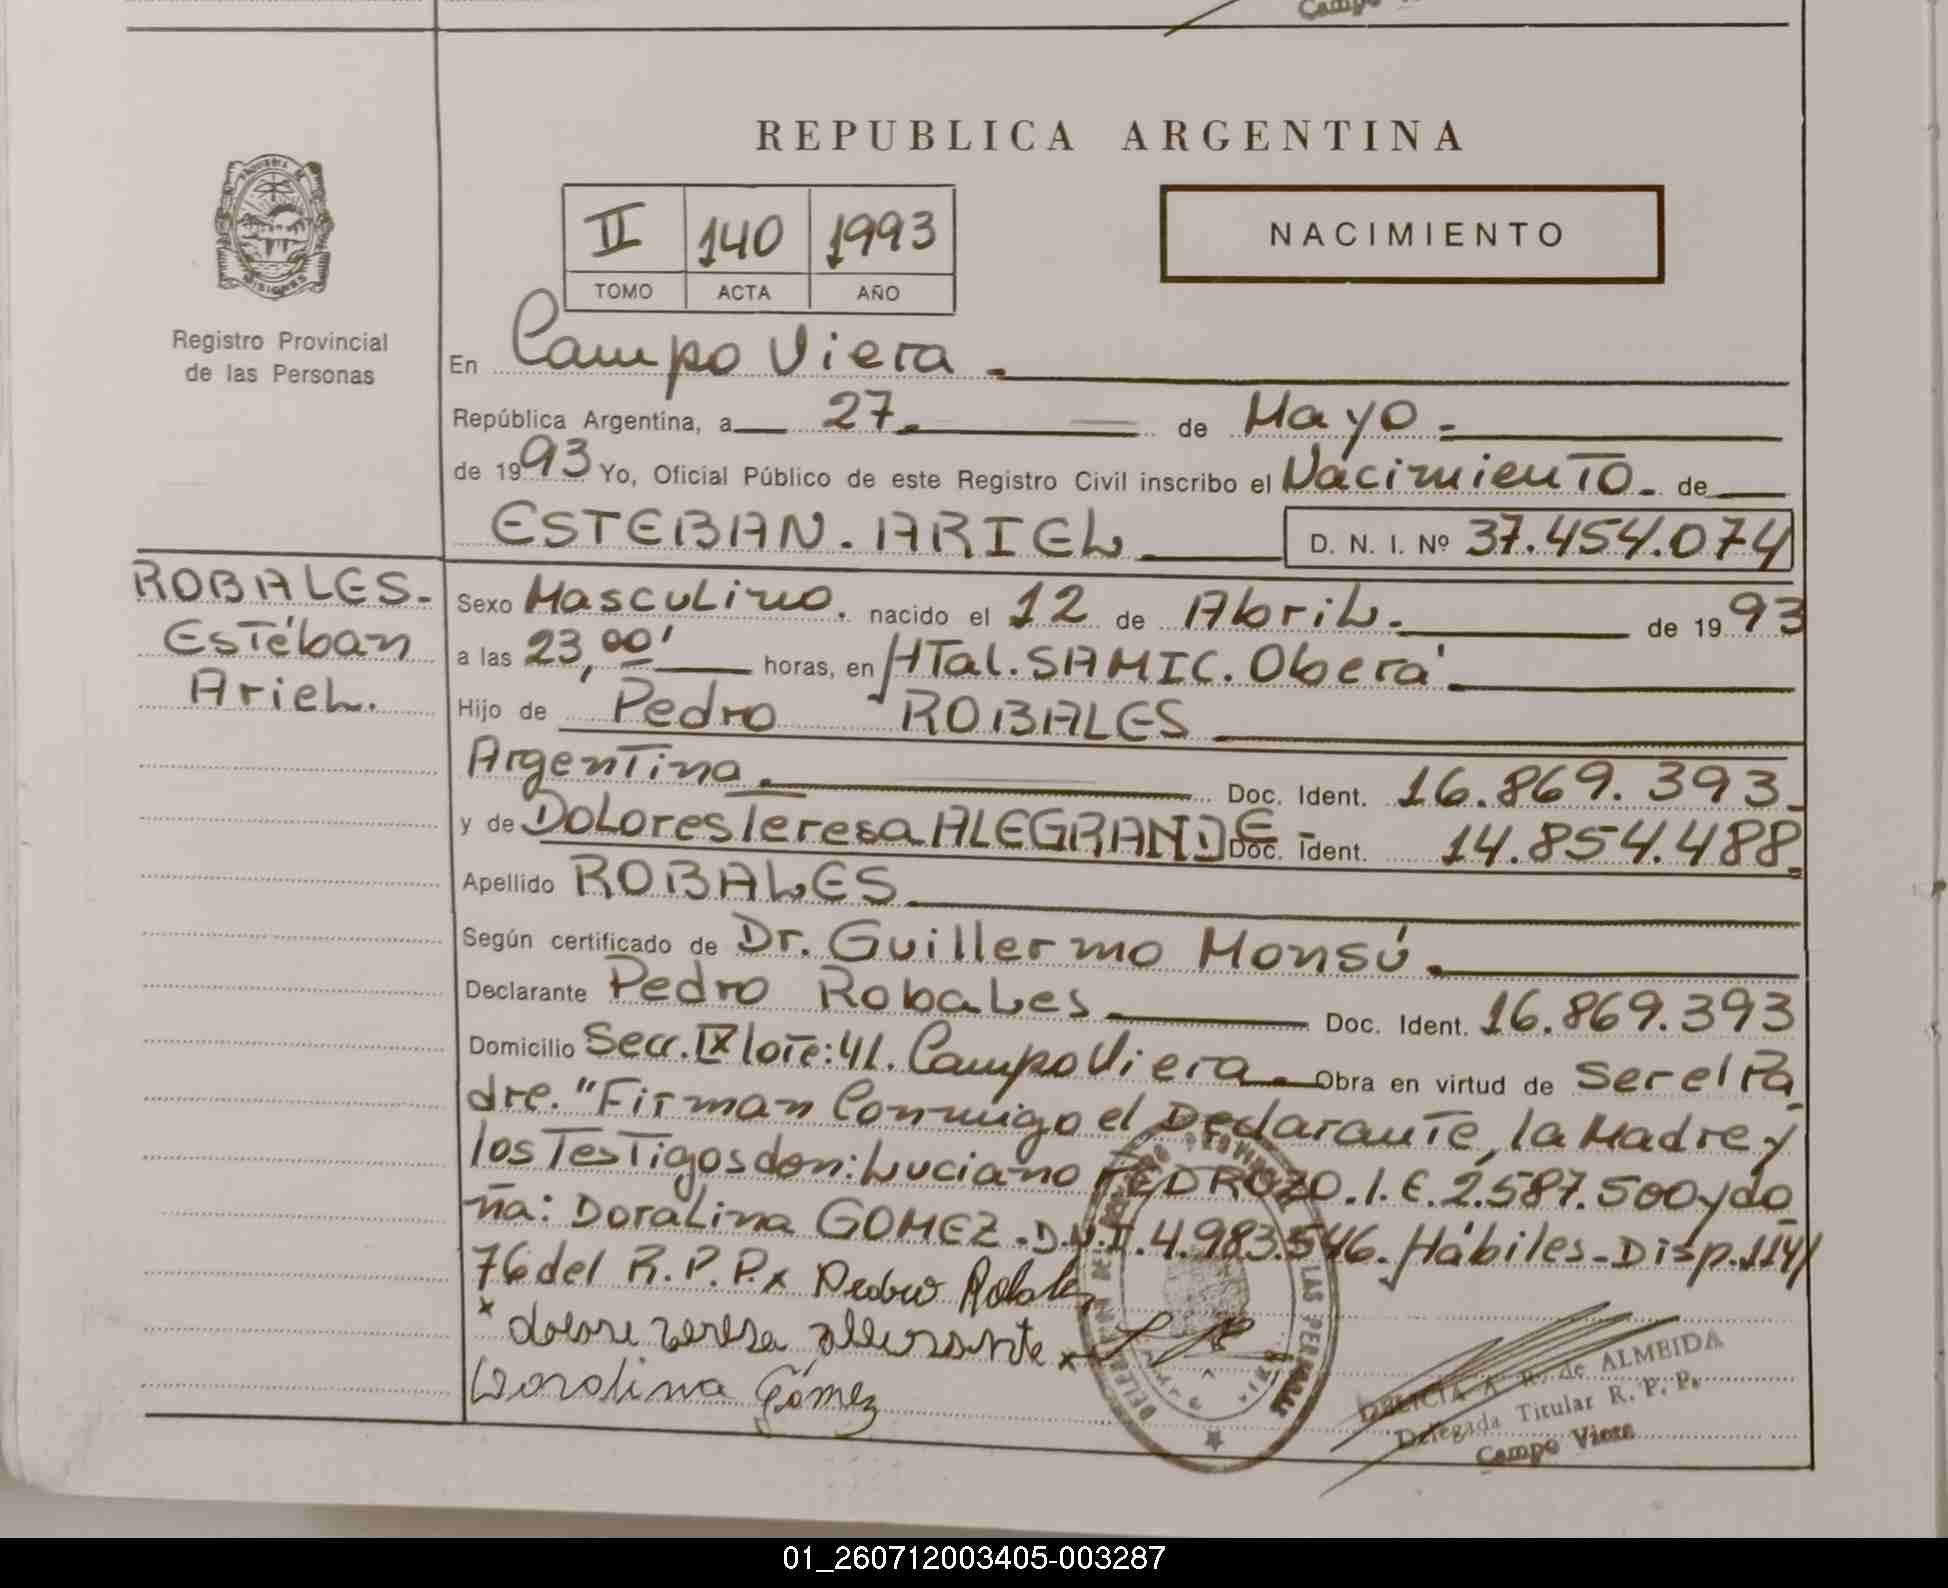 REPUBLICA ARGENTINA
II 140 1993
TOMO ACTA AÑO
NACIMIENTO
MISIONES
Registro Provincial
de las Personas
En Campo Viera.
República Argentina, a 27. de Mayo.
de 1993 Yo, Oficial Público de este Registro Civil inscribo el Nacimiento. de
ESTEBAN. ARIEL D. N. I. Nº 37.454.074
ROBALES.
Estéban
Ariel.
Sexo Masculino. nacido el 12 de Abril. de 1993
a las 23,00' horas, en HTal. SAMIC. Oberá
Hijo de Pedro ROBALES
Argentina. Doc. Ident. 16.869.393.
y de Dolores Teresa ALEGRANDE Doc. Ident. 14.854.488.
Apellido ROBALES
Según certificado de Dr. Guillermo Monsú.
Declarante Pedro Robales Doc. Ident. 16.869.393
Domicilio Secc. IX lote: 41. Campo Viera. Obra en virtud de Ser el Pa
dre. "Firman Conmigo el Declarante, la Madre y
los Testigos don: Luciano PEDROZO. I. E. 2.587.500 y do
ña: Doralina GOMEZ. D.N.I. 4.983.546. Hábiles - Disp. 114/
76 del R. P. P. x Pedro Robales
x dolore teresa x
Doralina Gómez
LAS PERSONAS
DELICIA A. R. de ALMEIDA
Delegada Titular R. P. P.
Campo Viera
01_260712003405-003287